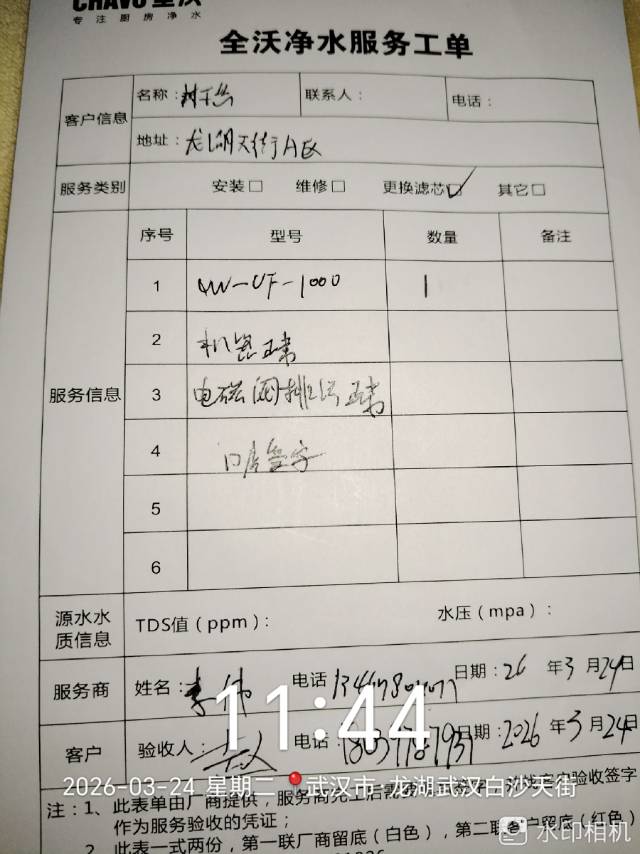 CHAVO 全沃
专注厨房净水
全沃净水服务工单
客户信息
名称：
联系人：
电话：
地址：龙湖天街A区
服务类别
安装□ 维修□ 更换滤芯☑ 其它□
服务信息
序号 型号 数量 备注
1 QW-UF-1000 1
2 机器正常
3 电磁阀排污正常
4 门店签字
5
6
源水水质信息
TDS值（ppm）： 水压（mpa）：
服务商
姓名：李伟 电话 日期：26 年3月24日
客户
验收人： 电话： 日期：2026年3月24日
11:44
2026-03-24 星期二 武汉市·龙湖武汉白沙天街
注：1、此表单由厂商提供，服务商完工后需
验收签字
作为服务验收的凭证；
2、此表一式两份，第一联厂商留底（白色），第二联客户留底（红色）
水印相机